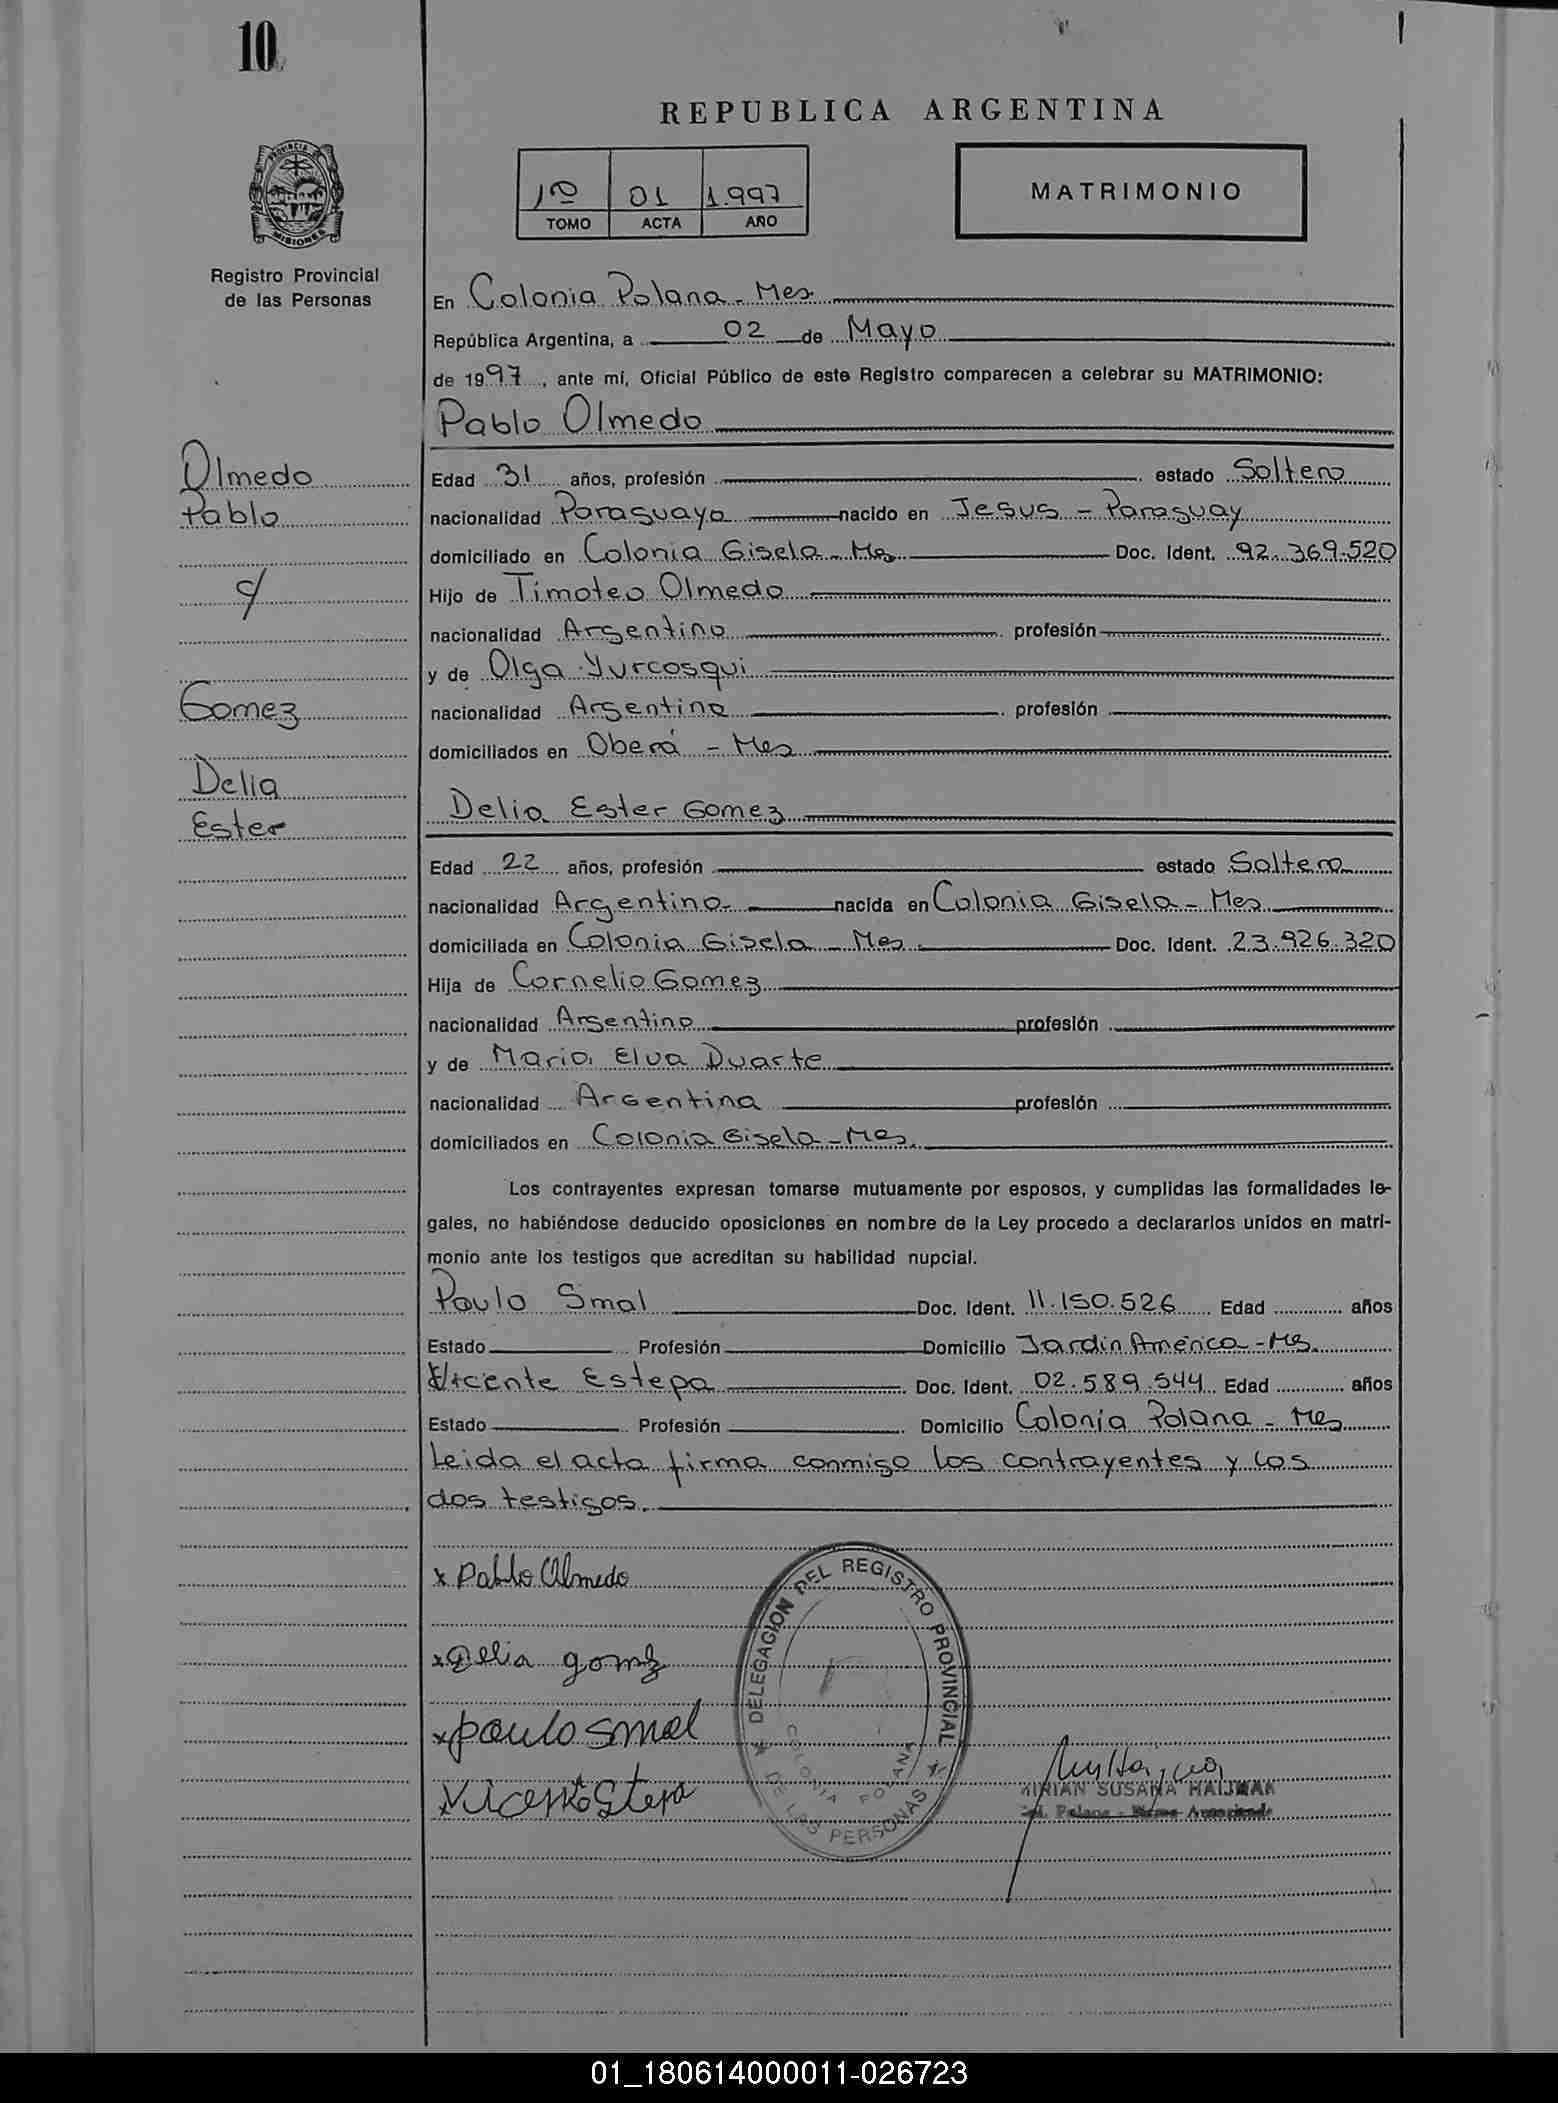 10
REPUBLICA ARGENTINA
PROVINCIA DE
MISIONES
Registro Provincial
de las Personas
1º 01 1.997
TOMO ACTA AÑO
MATRIMONIO
En Colonia Polana - Mes
República Argentina, a 02 de Mayo
de 1997, ante mí, Oficial Público de este Registro comparecen a celebrar su MATRIMONIO:
Pablo Olmedo
Olmedo
Pablo
c/
Gomez
Delia
Ester
Edad 31 años, profesión estado Soltero
nacionalidad Paraguaya nacido en Jesus - Paraguay
domiciliado en Colonia Gisela - Mes Doc. Ident. 92.369.520
Hijo de Timoteo Olmedo
nacionalidad Argentino profesión
y de Olga Yurcosqui
nacionalidad Argentina profesión
domiciliados en Oberá - Mes
Delia Ester Gomez
Edad 22 años, profesión estado Soltera
nacionalidad Argentina nacida en Colonia Gisela - Mes
domiciliada en Colonia Gisela - Mes Doc. Ident. 23.926.320
Hija de Cornelio Gomez
nacionalidad Argentino profesión
y de Maria Elva Duarte
nacionalidad Argentina profesión
domiciliados en Colonia Gisela - Mes
Los contrayentes expresan tomarse mutuamente por esposos, y cumplidas las formalidades le-
gales, no habiéndose deducido oposiciones en nombre de la Ley procedo a declararlos unidos en matri-
monio ante los testigos que acreditan su habilidad nupcial.
Paulo Smal Doc. Ident. 11.150.526 Edad años
Estado Profesión Domicilio Jardin América - Mes
Vicente Estepa Doc. Ident. 02.589.544 Edad años
Estado Profesión Domicilio Colonia Polana - Mes
Leida el acta firma conmigo los contrayentes y los
dos testigos.
x Pablo Olmedo
x Delia gomez
x paulo smal
DELEGACION DEL REGISTRO PROVINCIAL
DE LAS PERSONAS
COLONIA POLANA
MIRIAN SUSANA
Col. Polana - Firma Autorizada
01_180614000011-026723